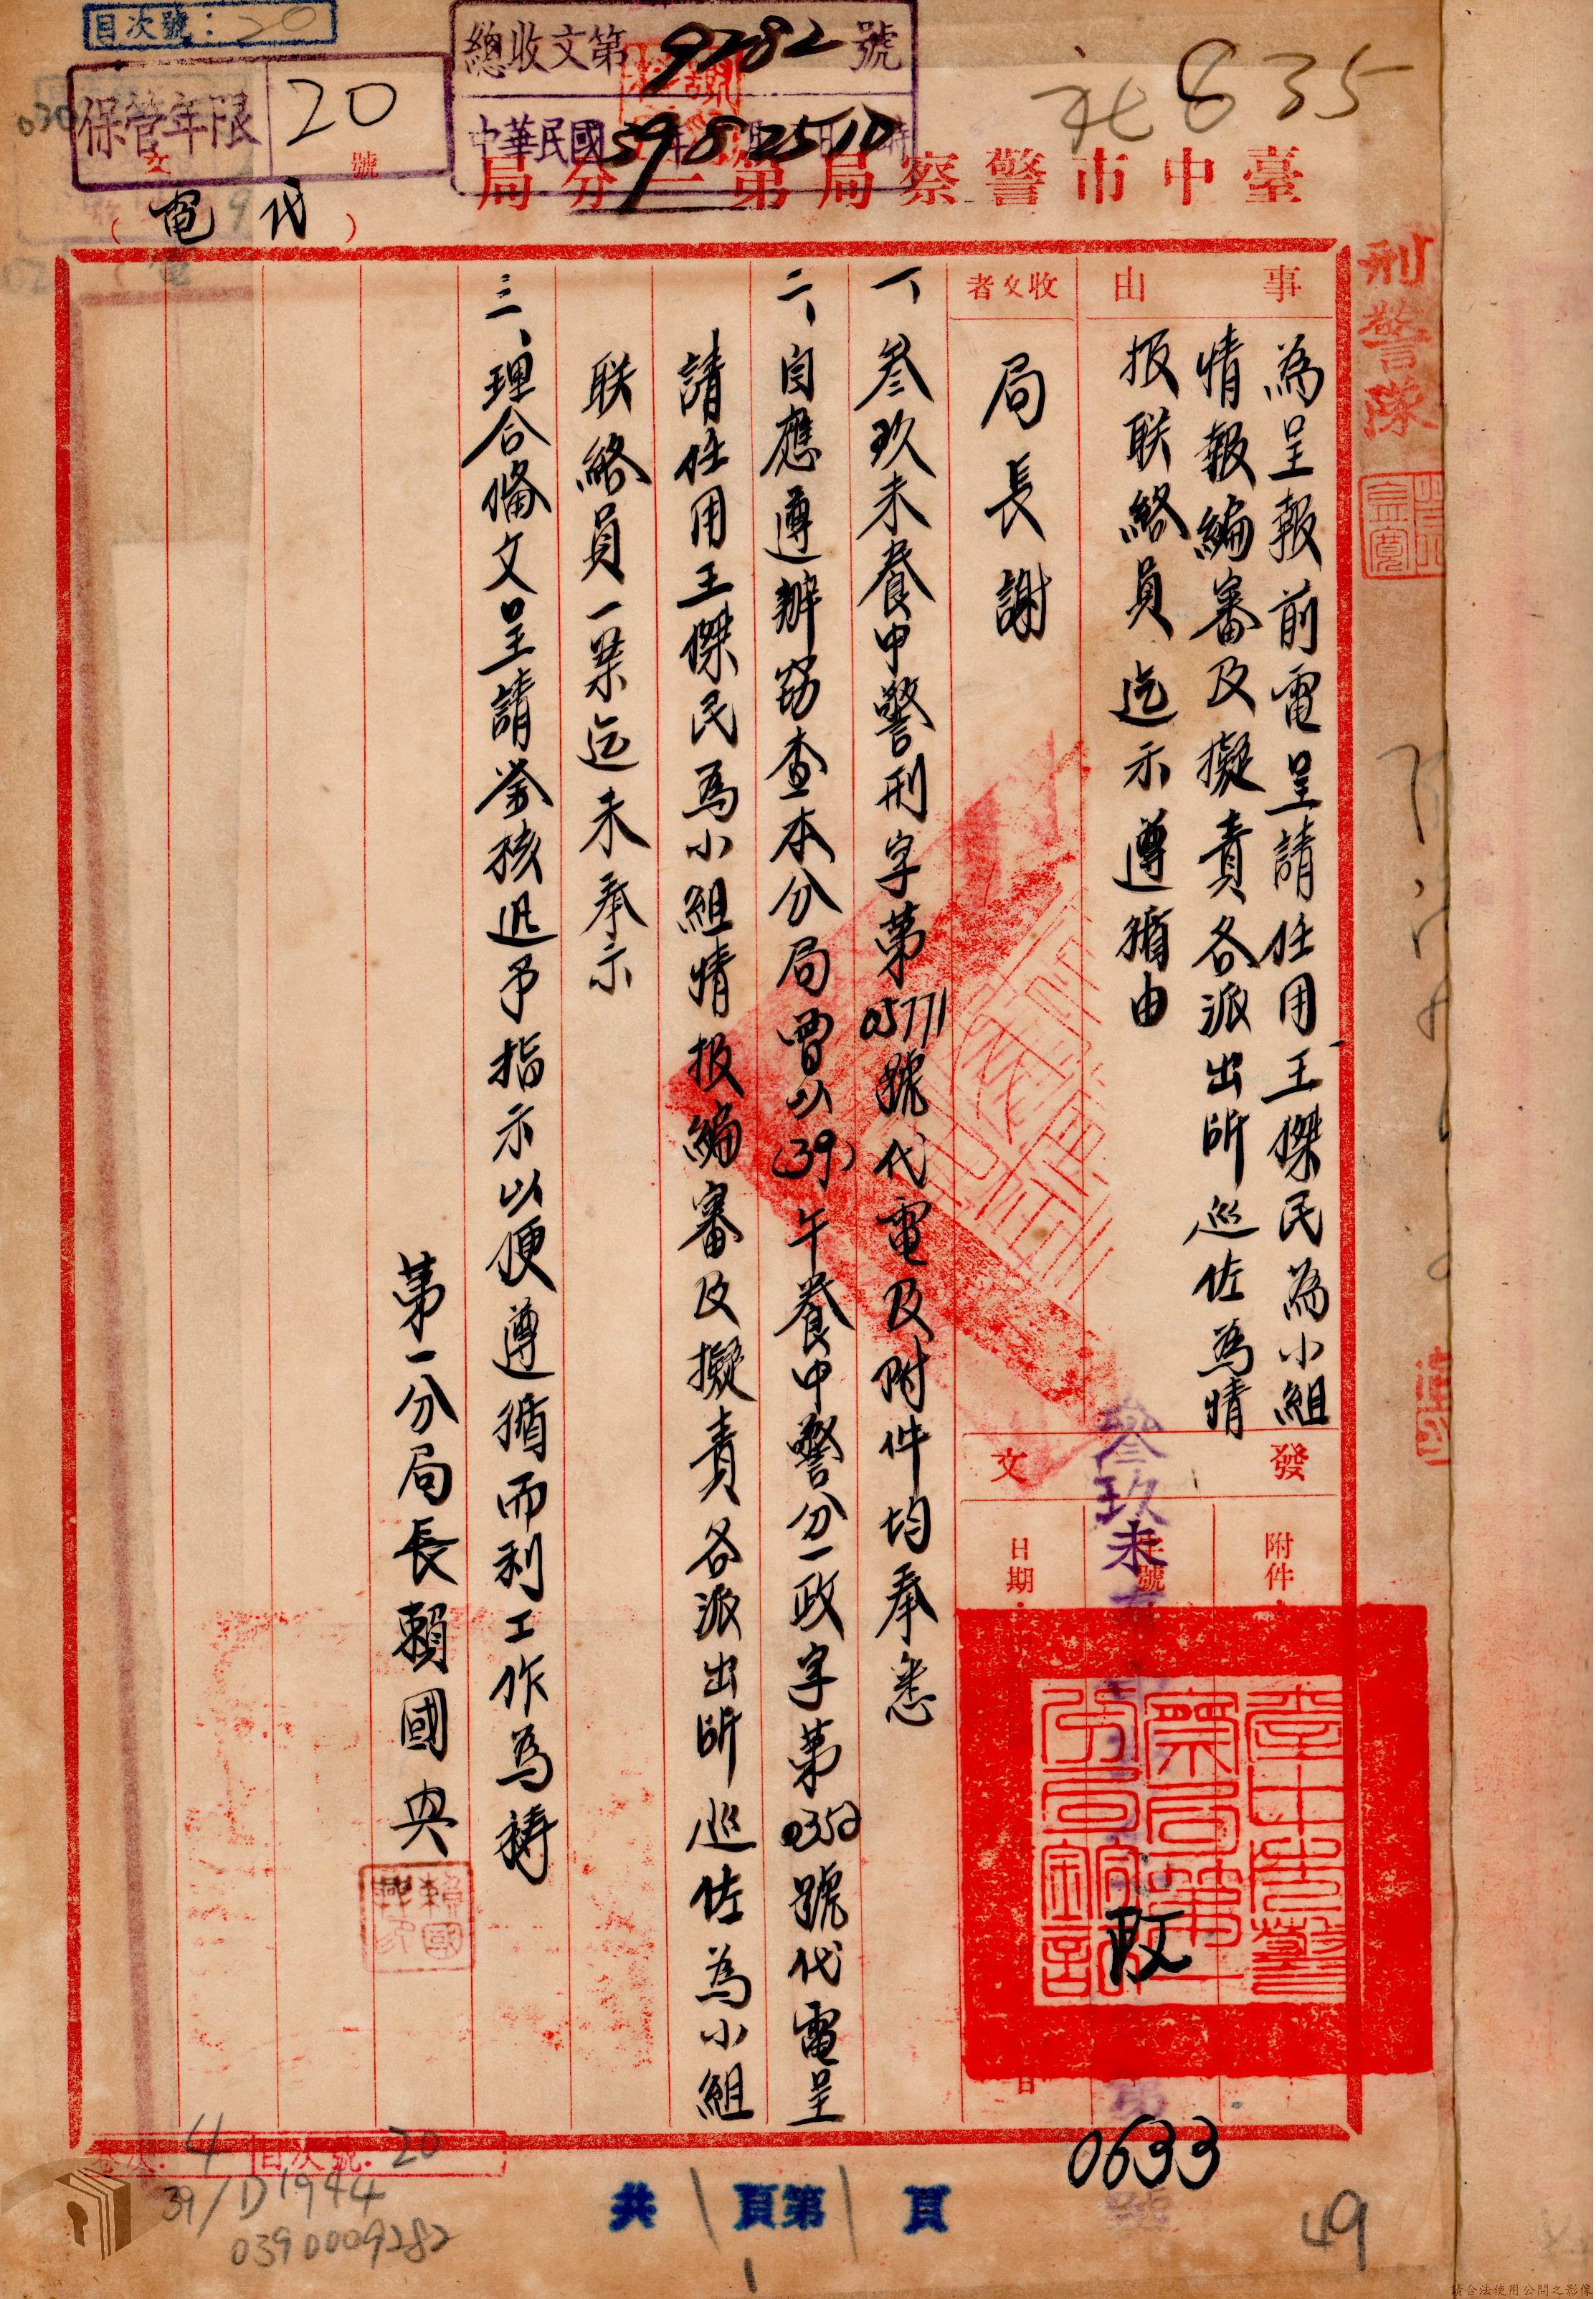 目次號：20
保管年限 20
總收文第9282號
中華民國39年8月25日10時
社835
臺中市警察局第一分局
（代電）
文 號
刑警隊
事由
為呈報前電呈請任用王傑民為小組
情報編審及擬責各派出所巡佐為情
报联絡員迄示遵循由
收文者
局長謝
發文
附件
字號
日期
叁玖未
政
0633
號
一、叁玖未養中警刑字第05771號代電及附件均奉悉
二、自應遵辦窃查本分局曾以(39)午養中警分一政字第0352號代電呈
請任用王傑民為小組情报編審及擬責各派出所巡佐為小組
联絡員一案迄未奉示
三、理合備文呈請鉴核迅予指示以便遵循而利工作為禱
第一分局長賴國興
賴國興印
4 目次號：20
39/D1944
0390009282
共1頁第1頁
1
49
請合法使用公開之影像